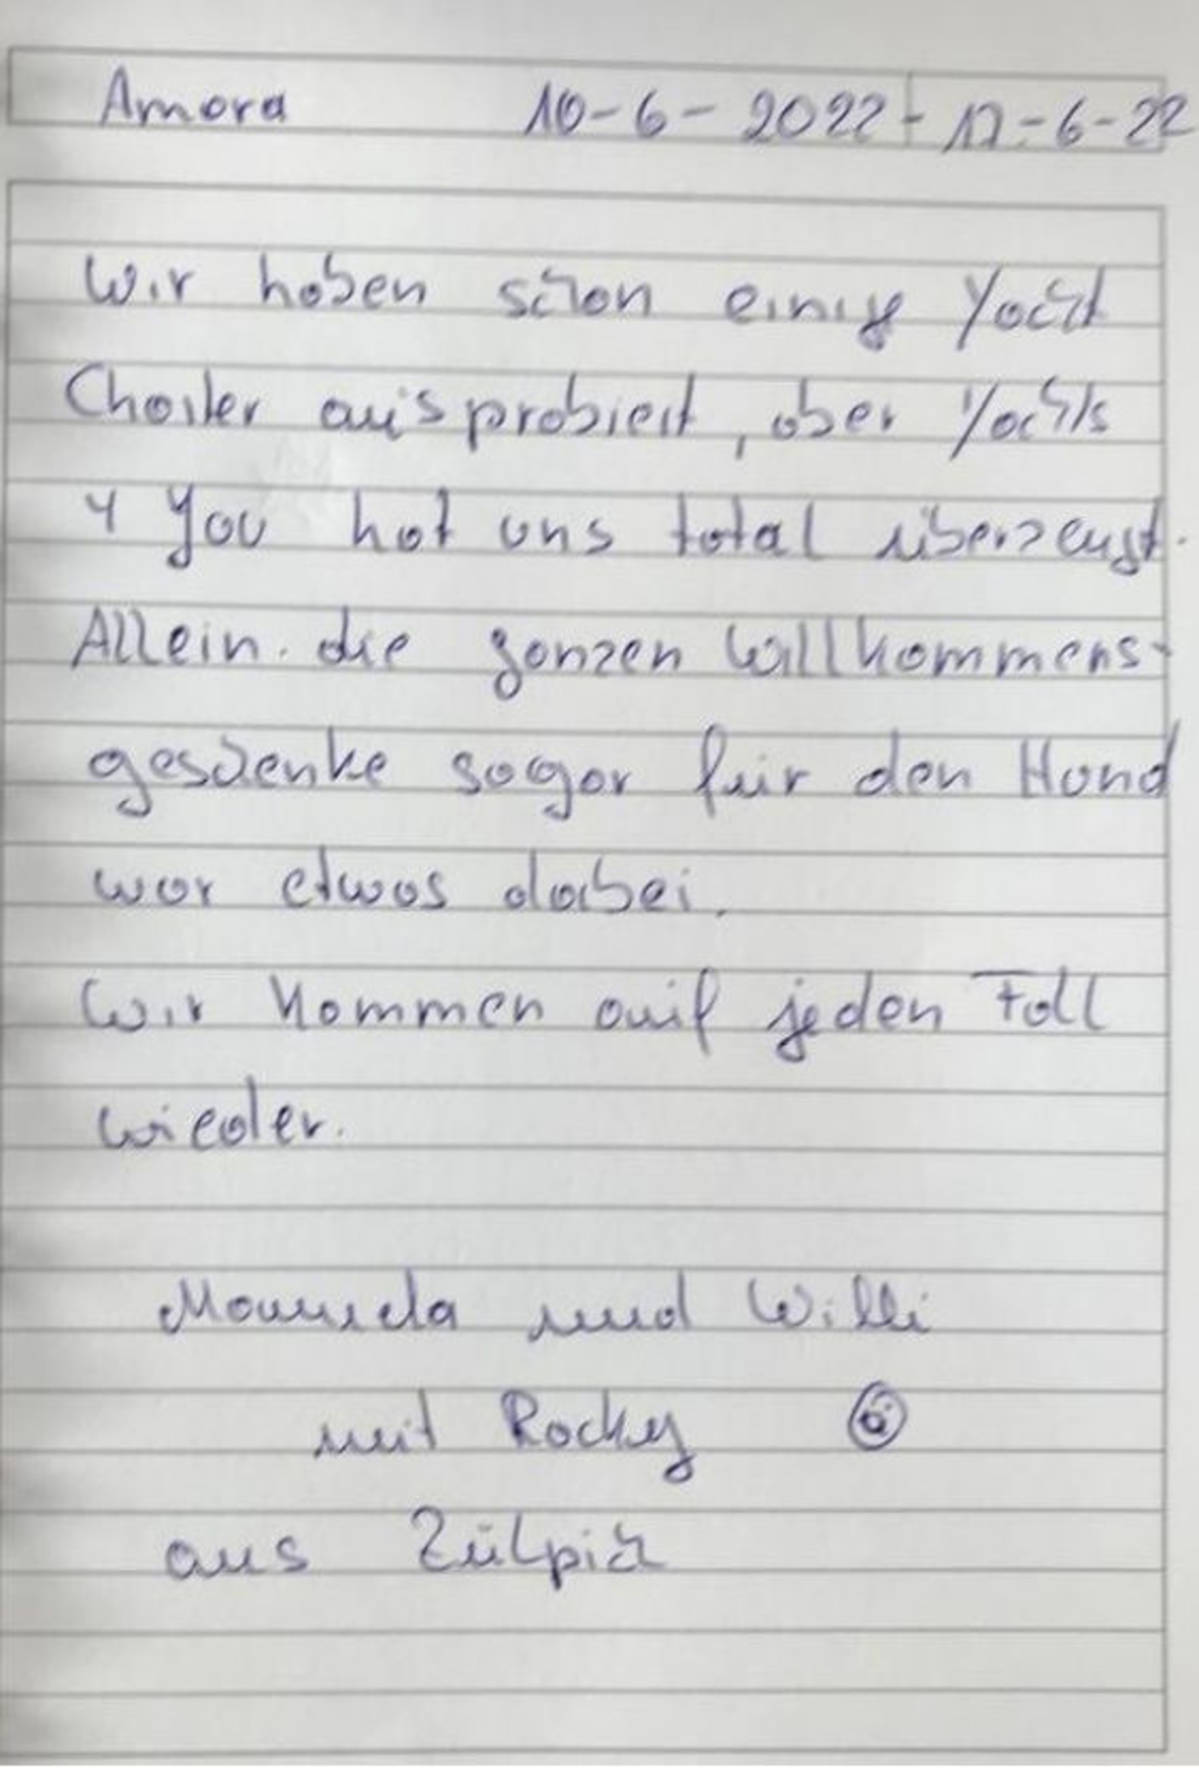 Amora 10-6-2022 - 17-6-22
Wir haben schon einige Yacht
Charter ausprobiert, aber Yachts
4 You hat uns total überzeugt.
Allein die ganzen Willkommens-
geschenke sogar für den Hund
war etwas dabei.
Wir kommen auf jeden Fall
wieder.
Manuela und Willi
mit Rocky
aus Zülpich